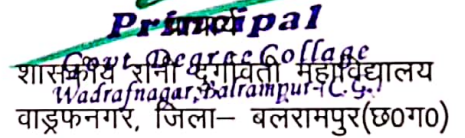 प्राचार्य
Principal
Govt Degree Collage
शासकीय रानी दुर्गावती महाविद्यालय
Wadrafnagar, Balrampur (C.G.)
वाड्रफनगर, जिला– बलरामपुर(छ0ग0)